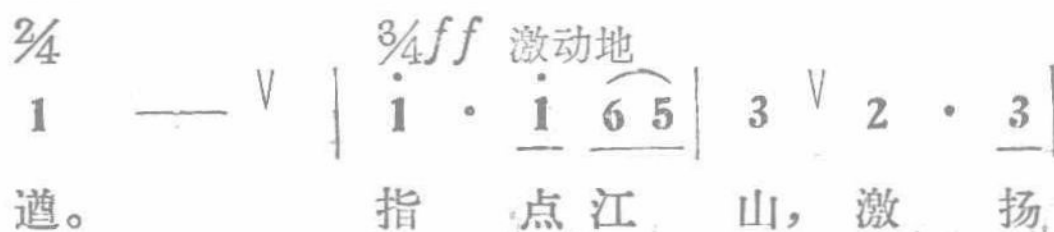 2/4 3/4 ff 激动地
1 — V | i̇ · i̇ 6 5 | 3 V 2 · 3 |
遒。 指 点 江 山， 激 扬